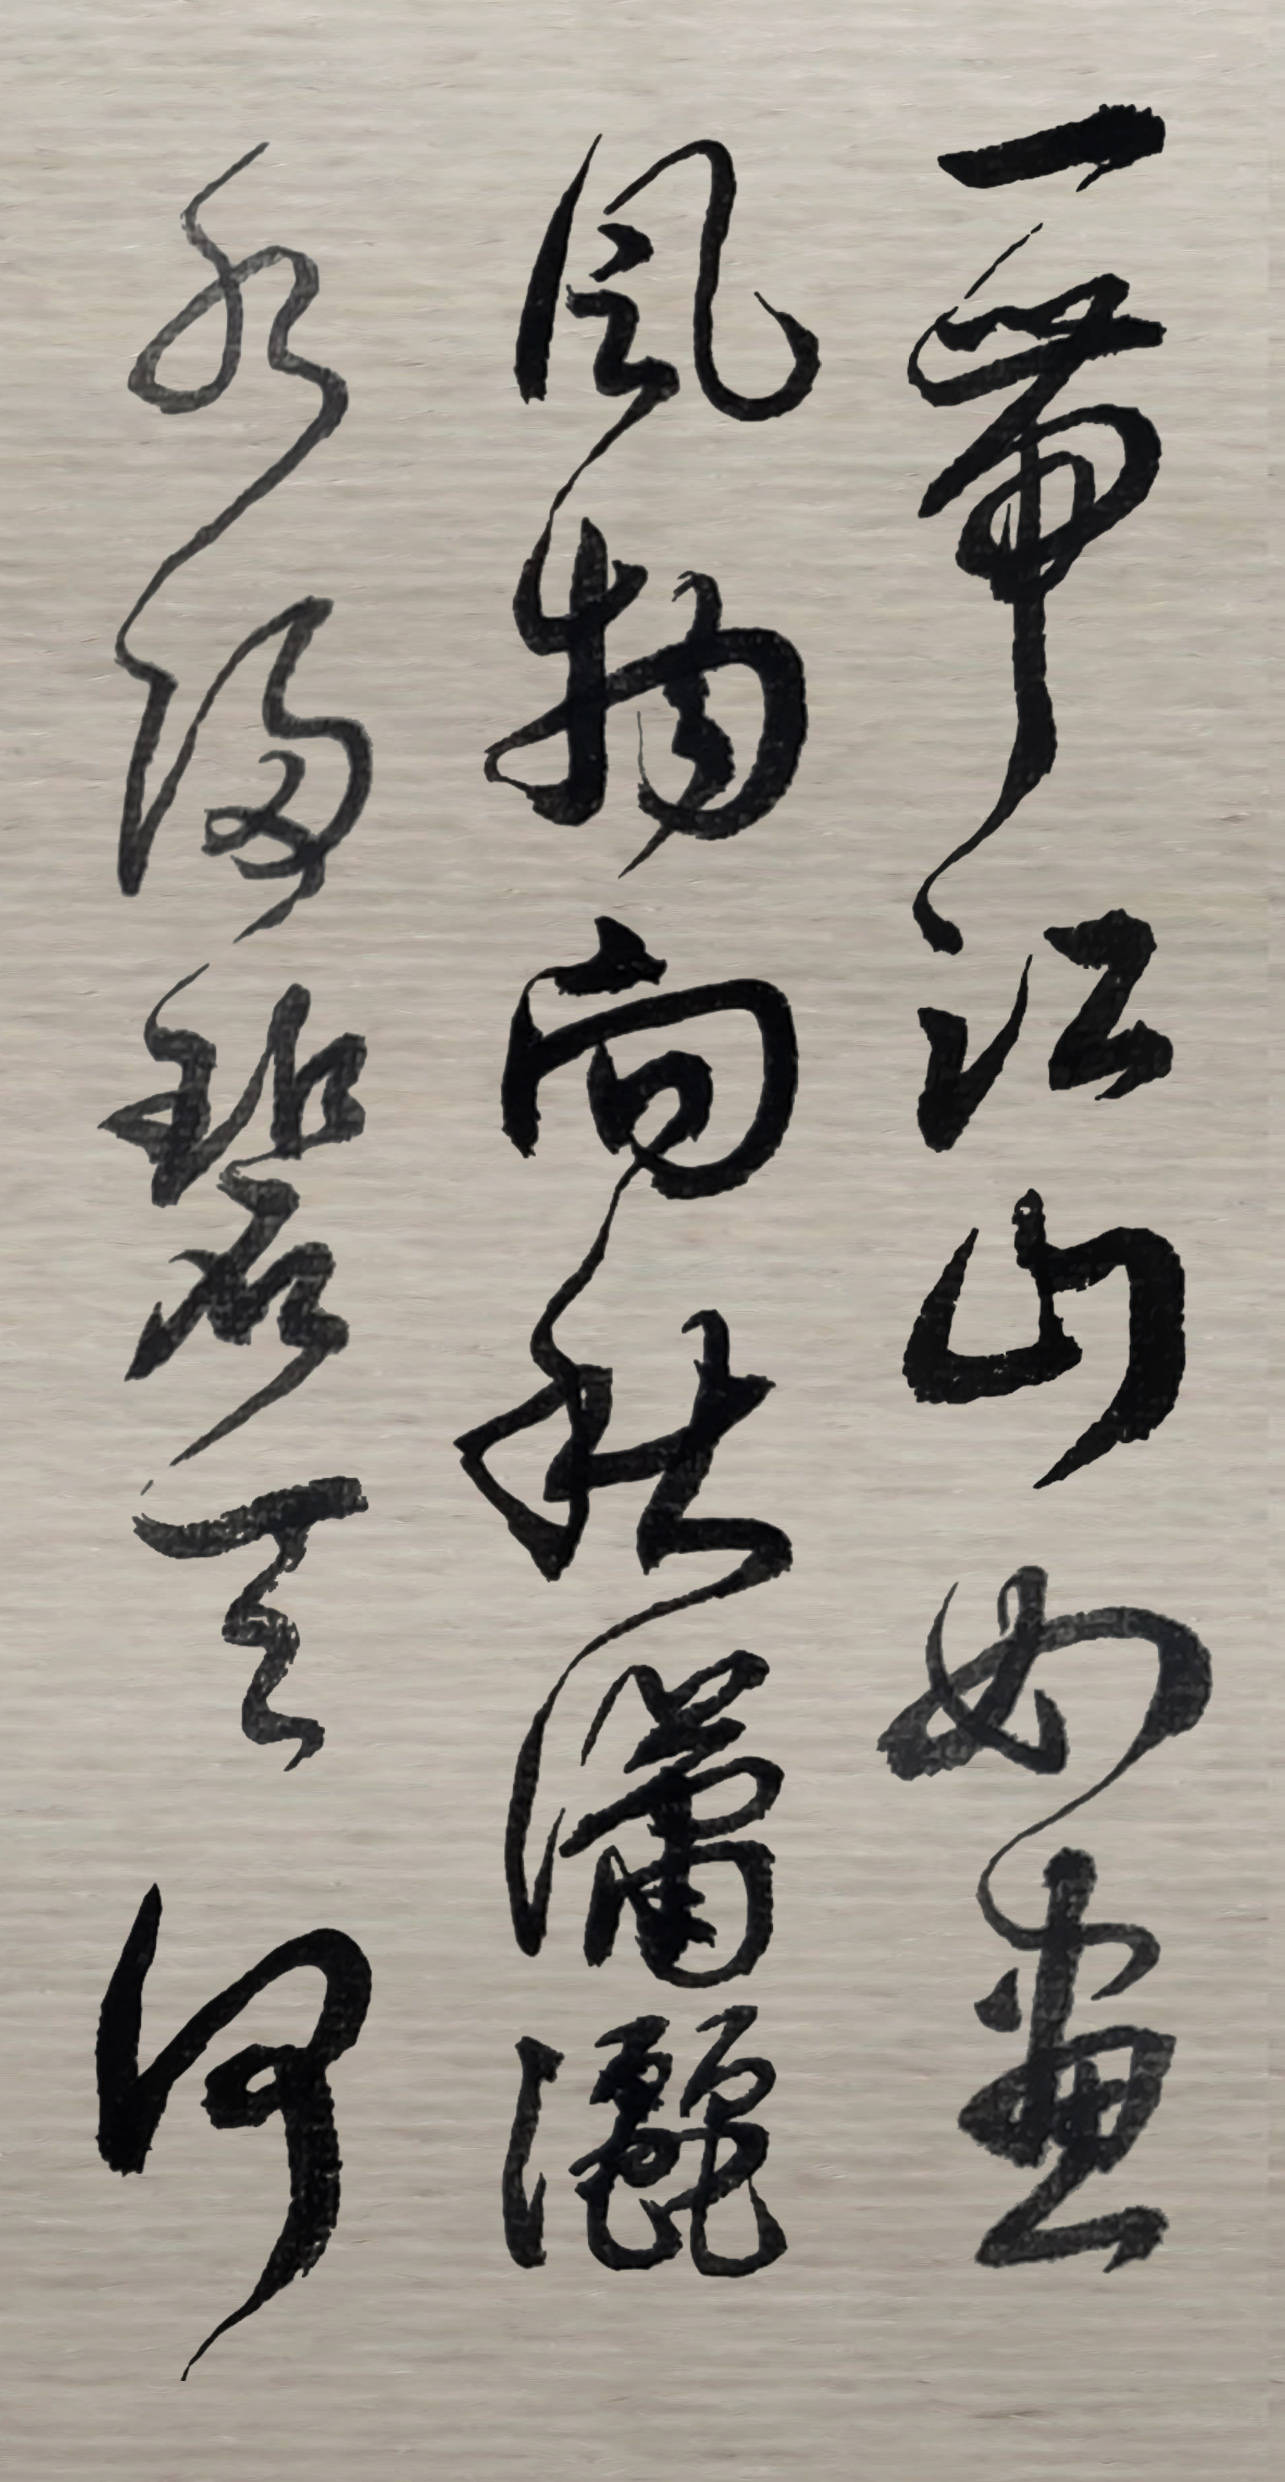 一帶江山如畫
風物向秋瀟灑
水浸碧天何